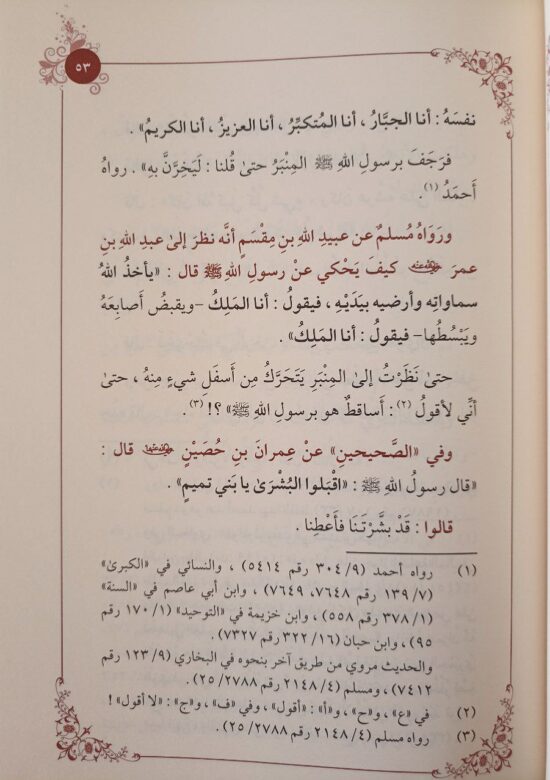 ٥٣
نفسَهُ : أنا الجبَّارُ ، أنا المُتكبِّرُ ، أنا العزيزُ ، أنا الكريمُ» .
فرَجَفَ برسولِ اللهِ ﷺ المِنْبَرُ حتىٰ قُلنا : لَيَخِرَّنَّ بهِ» . رواهُ
أَحمَدُ (١).
ورَوَاهُ مُسلمٌ عن عبيدِ اللهِ بنِ مِقْسَمٍ أنَّه نظرَ إلىٰ عبدِ اللهِ بنِ
عمرَ رضي الله عنه كيفَ يَحْكي عنْ رسولِ اللهِ ﷺ قال : «يأخذُ اللهُ
سماواتِه وأرضيه بيَدَيْهِ ، فيقولُ : أنا المَلِكُ –ويقبضُ أَصابِعَهُ
ويَبْسُطُها– فيقولُ : أنا المَلِكُ» .
حتىٰ نَظَرْتُ إلىٰ المِنْبَرِ يَتَحَرَّكُ مِن أَسفَلِ شيءٍ مِنهُ ، حتىٰ
أنِّي لأقولُ (٢) : أَساقطٌ هو برسولِ اللهِ ﷺ» ؟! (٣) .
وفي «الصَّحيحينِ» عنْ عِمرانَ بنِ حُصَيْنٍ رضي الله عنه قال :
«قال رسولُ اللهِ ﷺ : «اقْبَلوا البُشْرَىٰ يا بَني تميمٍ» .
قالوا : قَدْ بشَّرْتَنَا فأَعْطِنا .
(١) رواه أحمد (٩/ ٣٠٤ رقم ٥٤١٤) ، والنسائي في «الكبرىٰ»
(٧/ ١٣٩ رقم ٧٦٤٨، ٧٦٤٩) ، وابن أبي عاصم في «السنة»
(١/ ٣٧٨ رقم ٥٥٨) ، وابن خزيمة في «التوحيد» (١/ ١٧٠ رقم
٩٥) ، وابن حبان (١٦/ ٣٢٢ رقم ٧٣٢٧).
والحديث مروي من طريق آخر بنحوه في البخاري (٩/ ١٢٣ رقم
٧٤١٢) ، ومسلم (٤/ ٢١٤٨ رقم ٢٧٨٨/ ٢٥).
(٢) في «ع» ، و«ح» ، و«أ» : «أقول» ، وفي «ف» ، و«ج» : «لا أقول» !
(٣) رواه مسلم (٤/ ٢١٤٨ رقم ٢٧٨٨/ ٢٥).